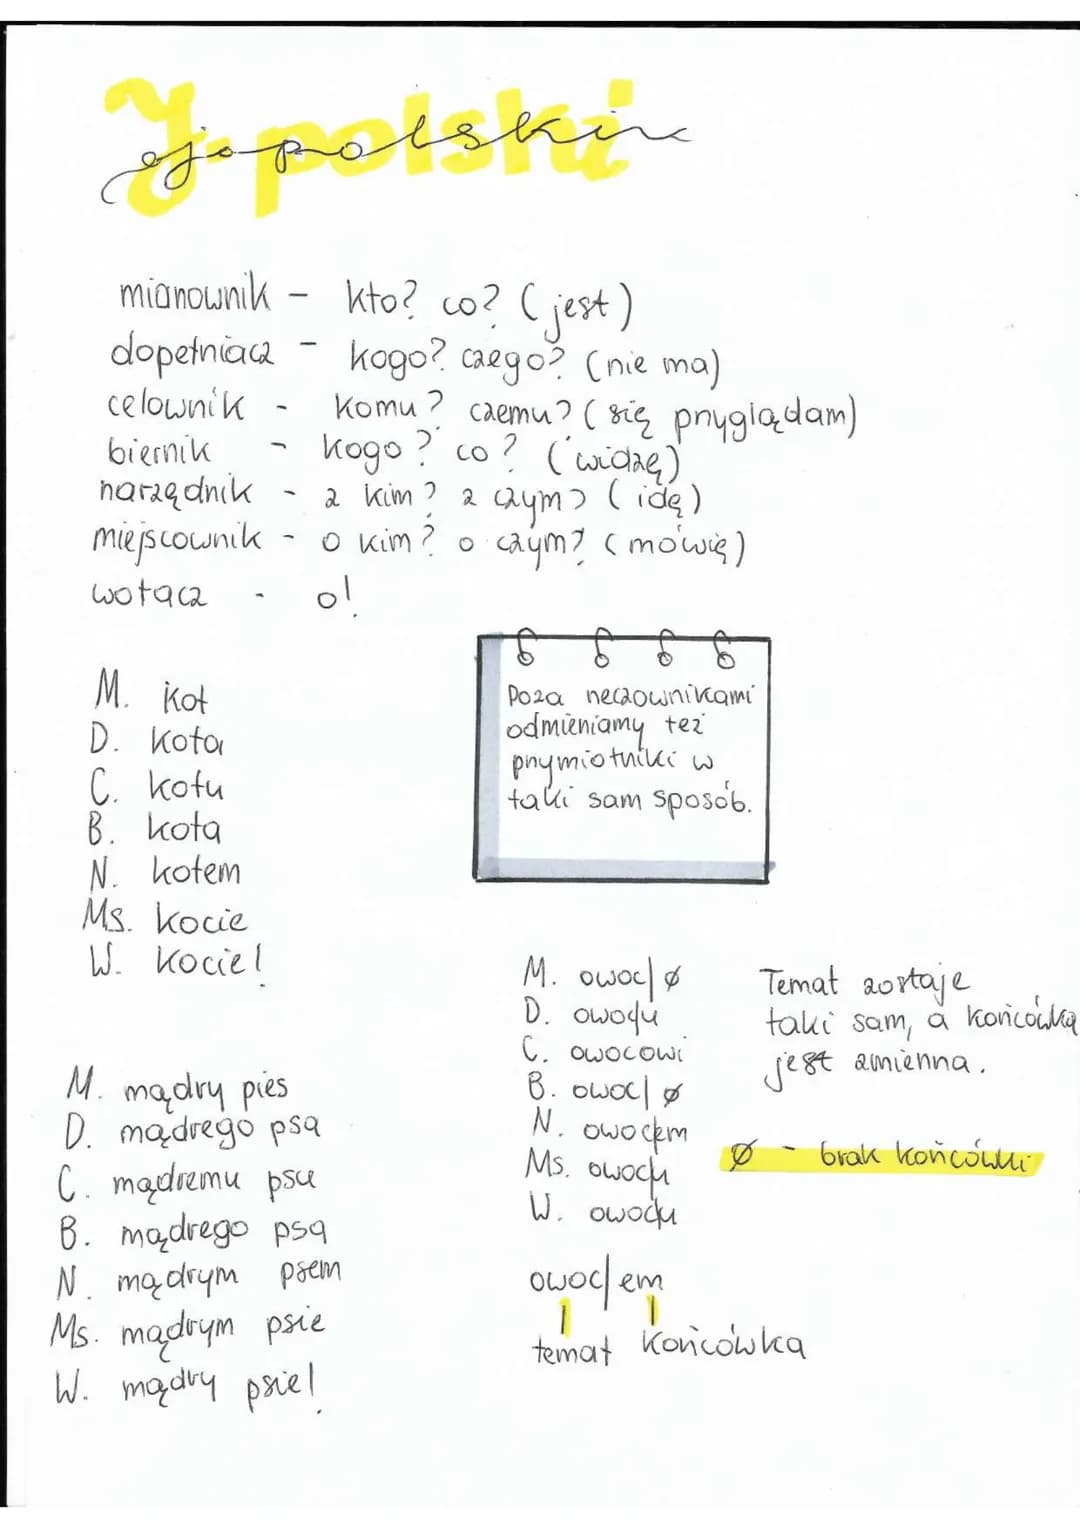 J. polski
mianownik - kto? co? (jest)
dopełniacz - kogo? czego? (nie ma)
celownik - komu? czemu? (się przyglądam)
biernik - kogo? co? (widzę)
narzędnik - z kim? z czym? (idę)
miejscownik - o kim? o czym? (mówię)
wołacz - o!
M. kot
D. kota
C. kotu
B. kota
N. kotem
Ms. kocie
W. kocie!
Poza rzeczownikami
odmieniamy też
przymiotniki w
taki sam sposób.
M. mądry pies
D. mądrego psa
C. mądremu psu
B. mądrego psa
N. mądrym psem
Ms. mądrym psie
W. mądry psie!
M. owoc|ø
D. owoc|u
C. owocowi
B. owoc|ø
N. owoc|em
Ms. owoc|u
W. owoc|u
owoc|em
temat końcówka
Temat zostaje
taki sam, a końcówka
jest zmienna.
Ø - brak końcówki